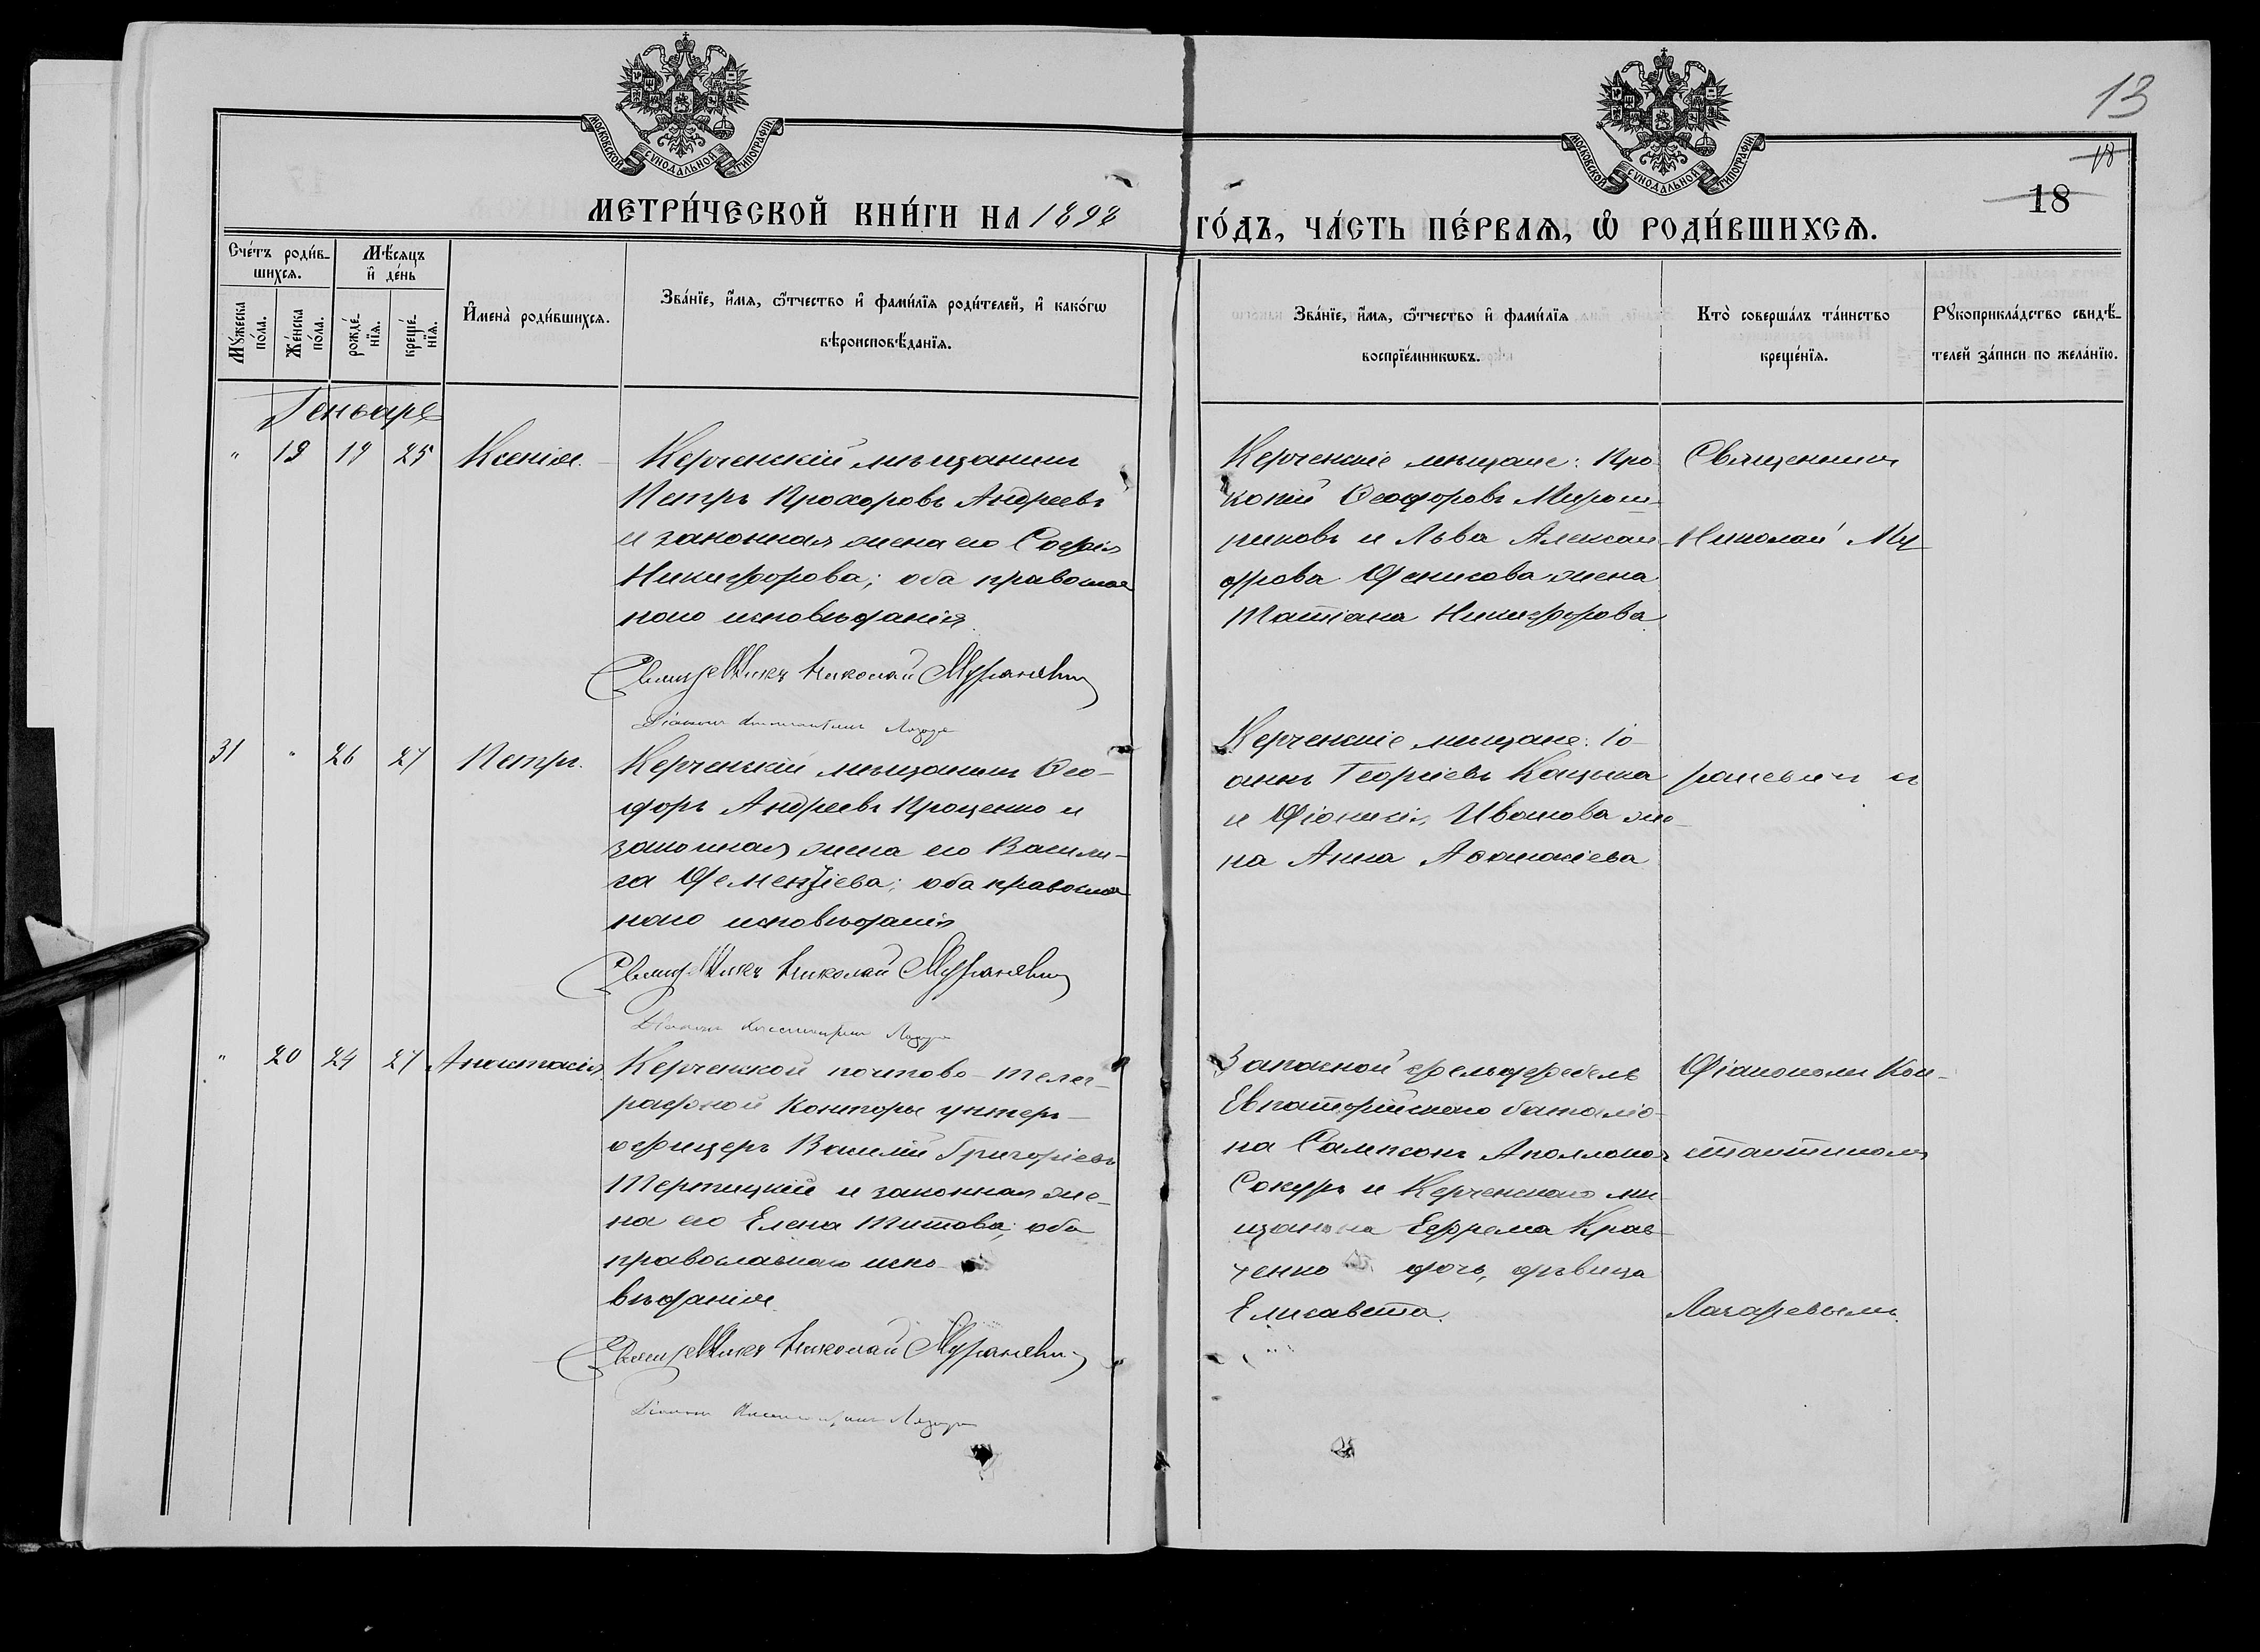 13
18
18
МОСКОВСКОЙ СУНОДАЛЬНОЙ ТИПОГРАФІИ.
МОСКОВСКОЙ СУНОДАЛЬНОЙ ТИПОГРАФІИ.
МЕТРИ́ЧЕСКОЙ КНИ́ГИ НА 1898 ГО́ДЪ, ЧА́СТЬ ПЕ́РВАЯ, Ѡ҆ РОДИ́ВШИХСЯ.
Сче́тъ роди́в-
шихся.
Мѣ́сяцъ
и҆ де́нь
Мꙋ́жеска
по́ла.
Же́нска
по́ла.
рожде́-
нїя.
креще́-
нїя.
И҆мена̀ роди́вшихся.
Зва́нїе, и҆́мя, ѻ҆́тчество и҆ фами́лїя роди́телей, и҆ како́гѡ
вѣроисповѣ́данїя.
Зва́нїе, и҆́мя, ѻ҆́тчество и҆ фами́лїя
воспрїе́мникѡвъ.
Кто̀ соверша́лъ та́инство
креще́нїя.
Рꙋкоприкла́дство свидѣ́-
телей за́писи по жела́нїю.
Генварь
" 19 19 25 Ксенія.
Керченскій мѣщанинъ
Петръ Прохоровъ Андреевъ
и законная жена его Софія
Никифорова; оба православ
наго исповѣданія.
Священникъ Николай Мураневич
Діаконъ Константинъ
Керченскіе мѣщане: Про-
копій Ѳеодоровъ Мирош-
никовъ и Льва Алексан-
дрова Денисова жена
Татіана Никифорова
Священникъ
Николай Му
31 " 26 27 Петръ.
Керченскій мѣщанинъ Ѳео-
доръ Андреевъ Проценко и
законная жена его Васили-
са Дементіева; оба православ
наго исповѣданія
Священникъ Николай Мураневич
Діаконъ Константинъ
Керченскіе мѣщане: Іо-
аннъ Георгіевъ Кацыка
и Діонисія Иванова же-
на Анна Аѳанасіева
раневичъ съ
" 20 24 27 Анастасія.
Керченской почтово-телег-
рафной Конторы унтеръ-
офицеръ Василій Григоріевъ
Терпицкій и законная же-
на его Елена Титова; оба
православнаго испо-
вѣданія.
Священникъ Николай Мураневич
Діаконъ Константинъ
Запасной фельдфебель
Евпаторійскаго баталіо-
на Сампсонъ Аполлоновъ
Сокуръ и Керченскаго мѣ-
щанина Ефрема Крав-
ченко дочь, дѣвица
Елисавета.
Діакономъ Кон-
стантиномъ
Лазаревымъ.